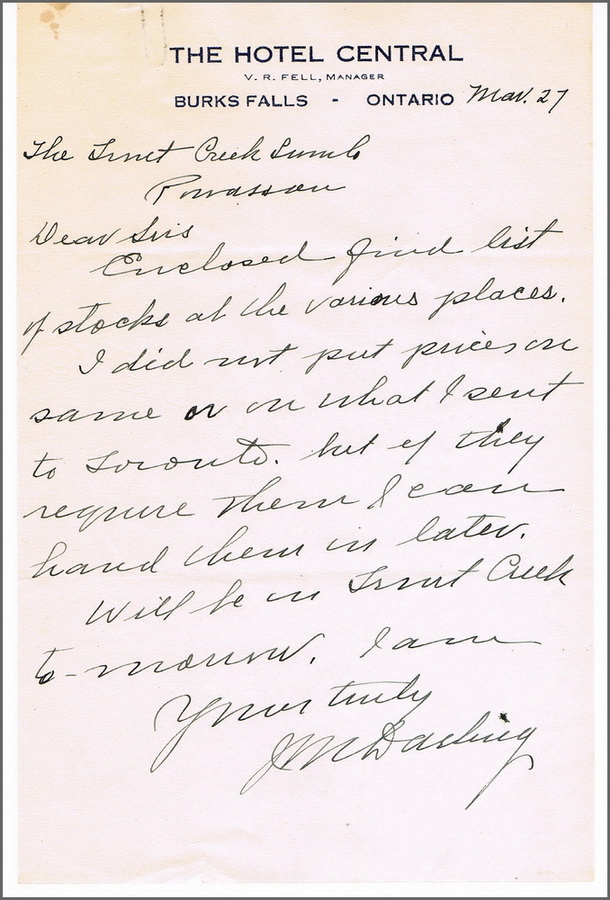 THE HOTEL CENTRAL
V. R. FELL, MANAGER
BURKS FALLS - ONTARIO Mar. 27
The Trout Creek Lumb
Powassan
Dear Sirs
Enclosed find list
of stocks at the various places.
I did not put prices on
same or on what I sent
to Toronto. but if they
require them I can
hand them in later.
Will be in Trout Creek
to-morrow. I am
Yours truly
J M Darling